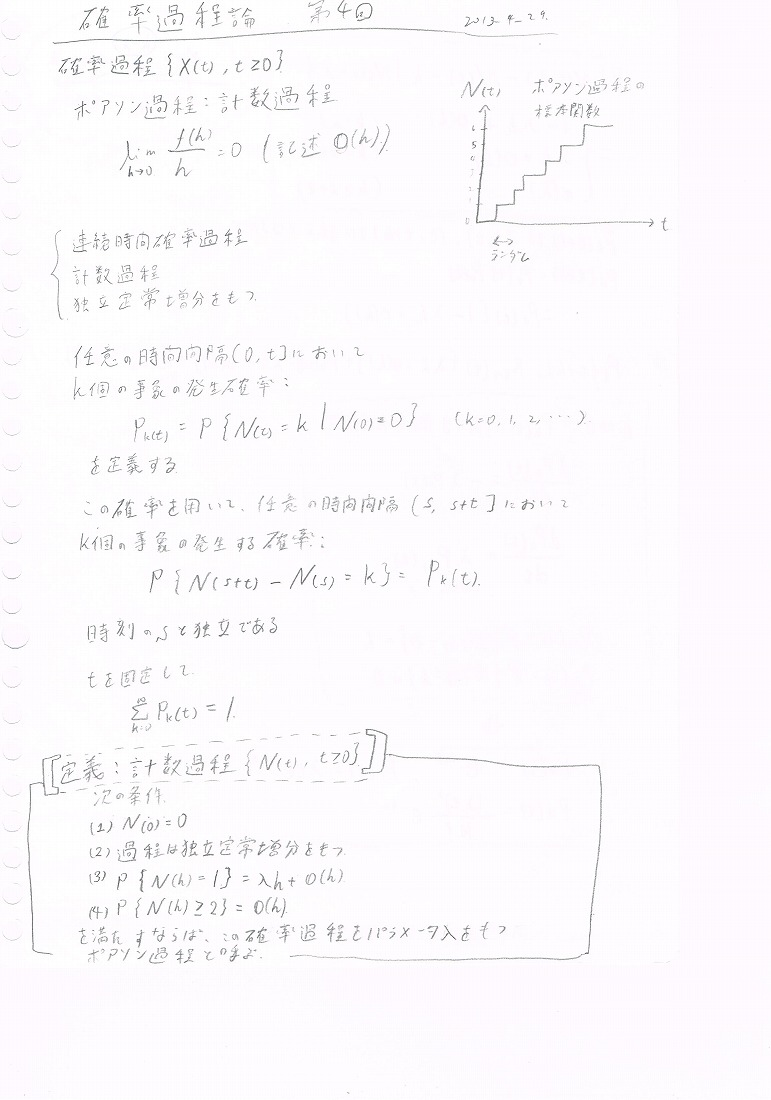 確率過程論 第4回 2013-4-29.
確率過程{X(t), t≥0}
ポアソン過程:計数過程
lim h→0 f(h)/h = 0 (記述 O(h))
N(t) ポアソン過程の
標本関数
6
5
4
3
2
1
0
t
ランダム
連結時間確率過程
計数過程
独立定常増分をもつ.
任意の時間間隔(0, t]において
k個の事象の発生確率:
Pk(t) = P{N(t)=k | N(0)=0} (k=0, 1, 2, ...).
を定義する.
この確率を用いて、任意の時間間隔 (s, s+t]において
k個の事象の発生する確率:
P{N(s+t) - N(s) = k} = Pk(t).
時刻のsと独立である
tを固定して.
∞Σk=0 Pk(t) = 1.
定義:計数過程{N(t), t≥0}
次の条件.
(1) N(0)=0
(2) 過程は独立定常増分をもつ.
(3) P{N(h)=1} = λh + O(h).
(4) P{N(h)≥2} = O(h).
を満たすならば、この確率過程をパラメータλをもつ
ポアソン過程と呼ぶ.